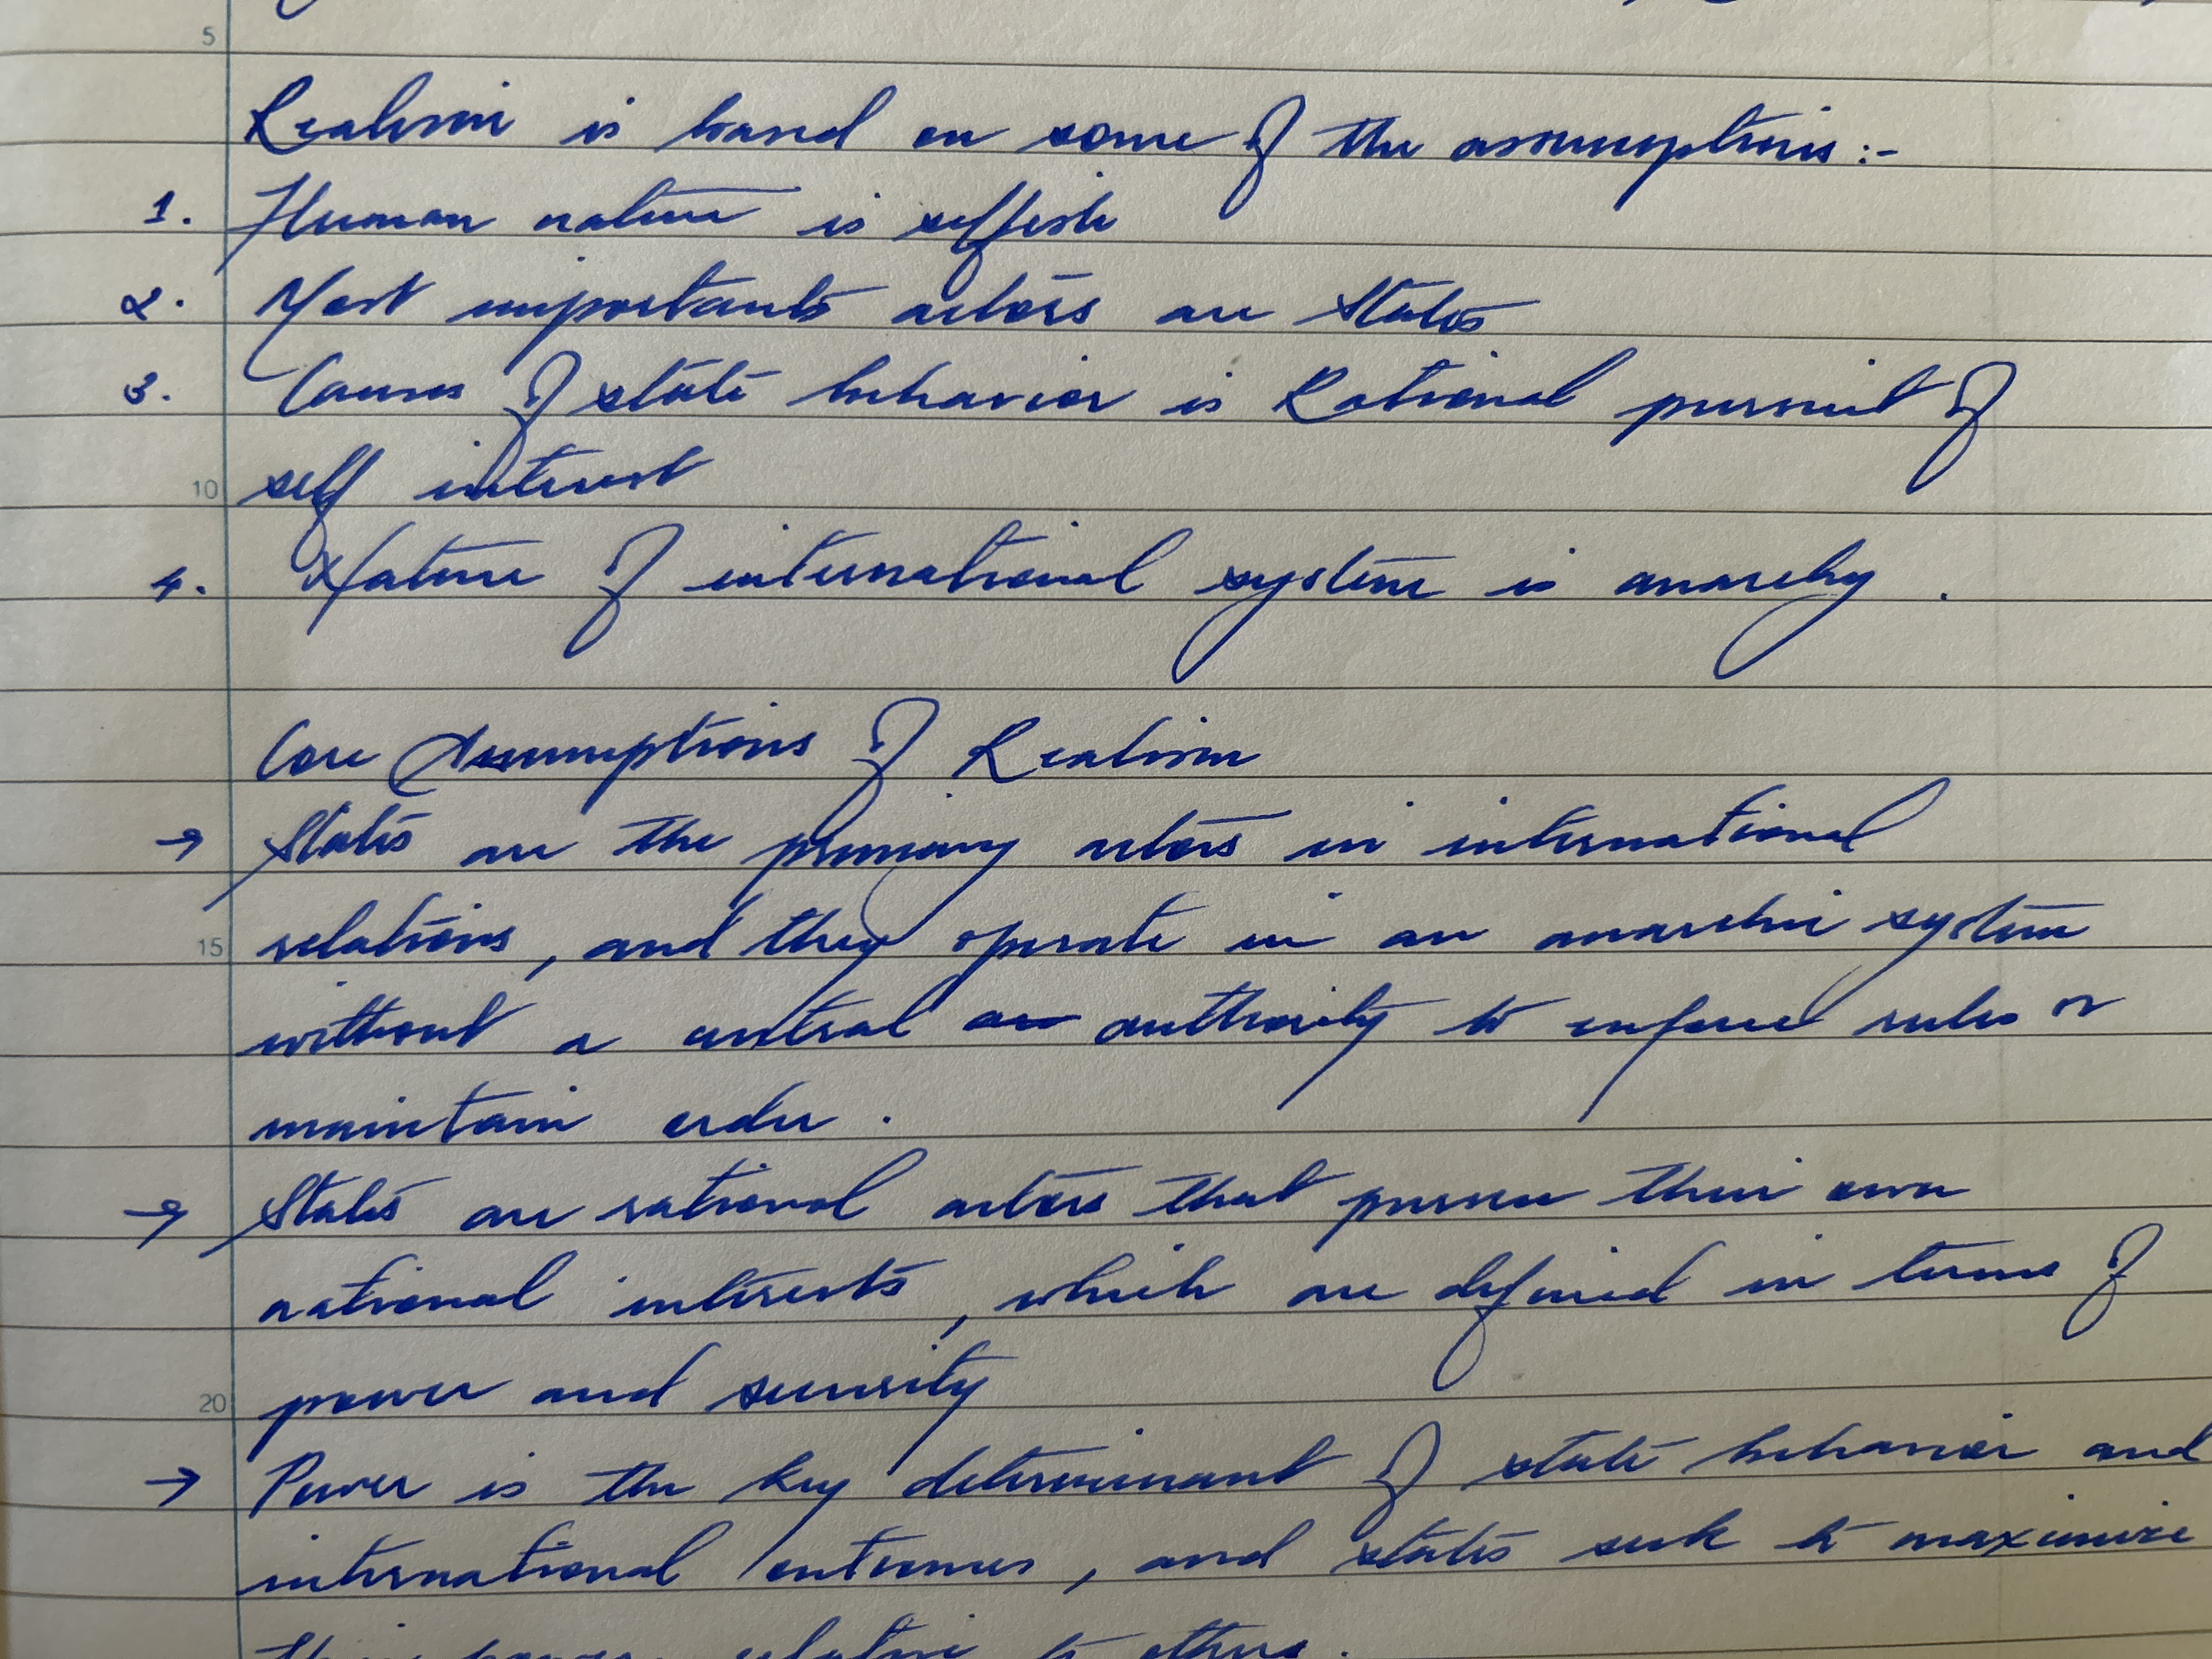 5
Realism is based on some of the assumptions :-
1. Human nature is selfish
2. Most importants actors are States
3. Causes of state behavior is Rational pursuit of
10 self interest
4. Nature of international system is anarchy .
Core Assumptions of Realism
→ States are the primary actors in international
15 relations, and they operate in an anarchic system
without a central authority to enforce rules or
maintain order .
→ States are rational actors that pursue their own
national interests, which are defined in terms of
20 power and security
→ Power is the key determinant of state behavior and
international outcomes, and states seek to maximize
their power relative to others.